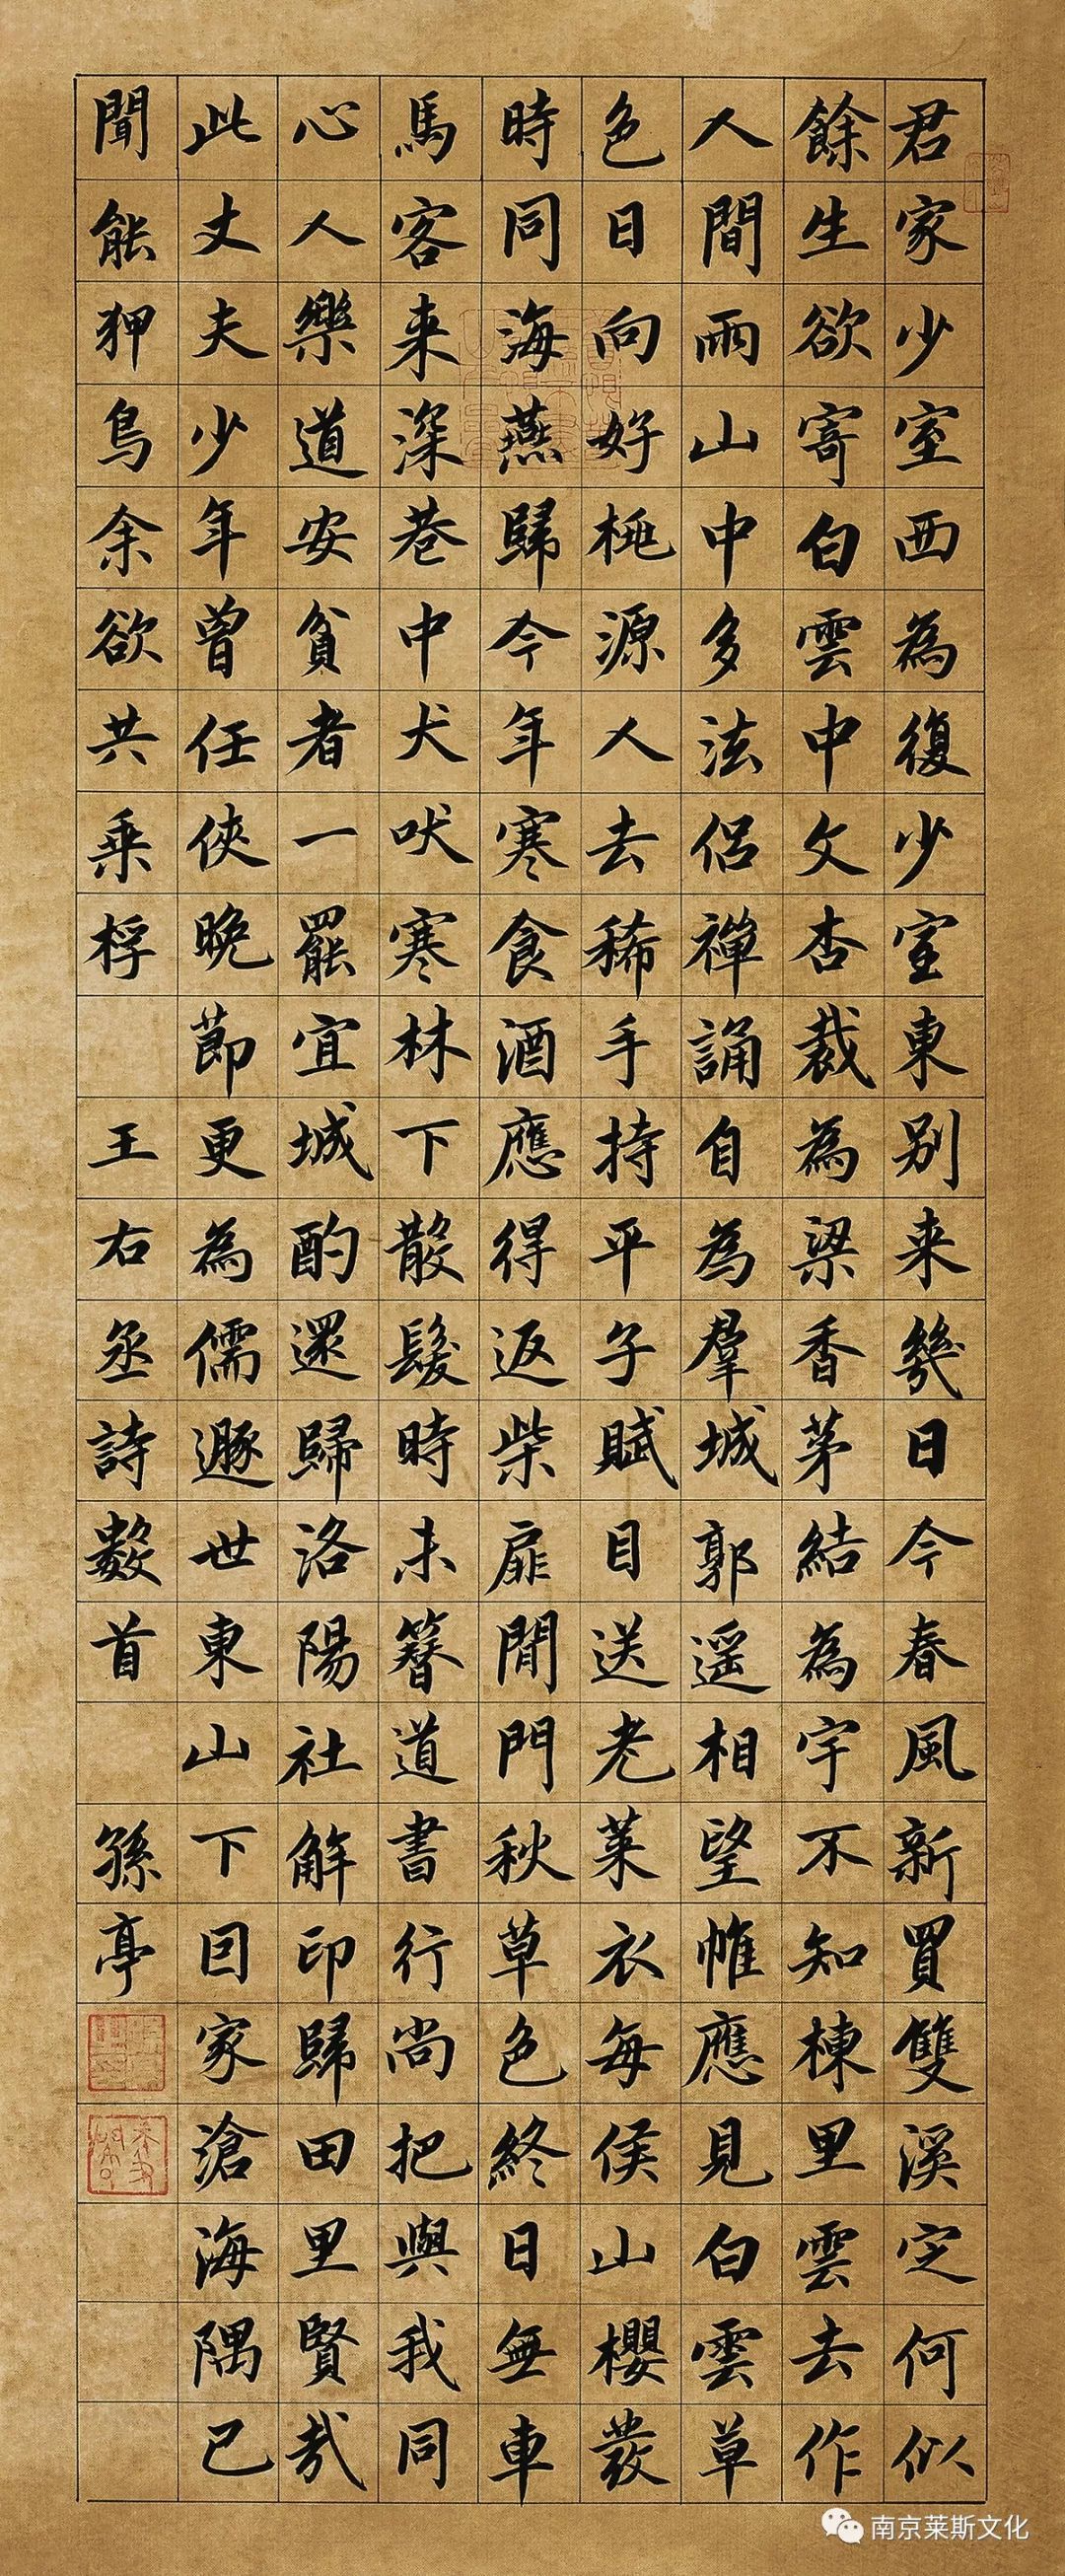 君家少室西為復少室東别来幾日今春風新買雙溪定何似
餘生欲寄白雲中文杏裁為梁香茅結為宇不知棟里雲去作
人間雨山中多法侣禪誦自為羣城郭遥相望惟應見白雲草
色日向好桃源人去稀手持平子賦目送老萊衣每候山櫻發
時同海燕歸今年寒食酒應得返柴扉閒門秋草色終日無車
馬客来深巷中犬吠寒林下散髮時未簪道書行尚把與我同
心人樂道安貧者一罷宜城酌還歸洛陽社解印歸田里賢哉
此丈夫少年曾任俠晚節更為儒遯世東山下因家滄海隅已
聞能狎鳥余欲共乘桴 王右丞詩數首 孫亭
南京莱斯文化